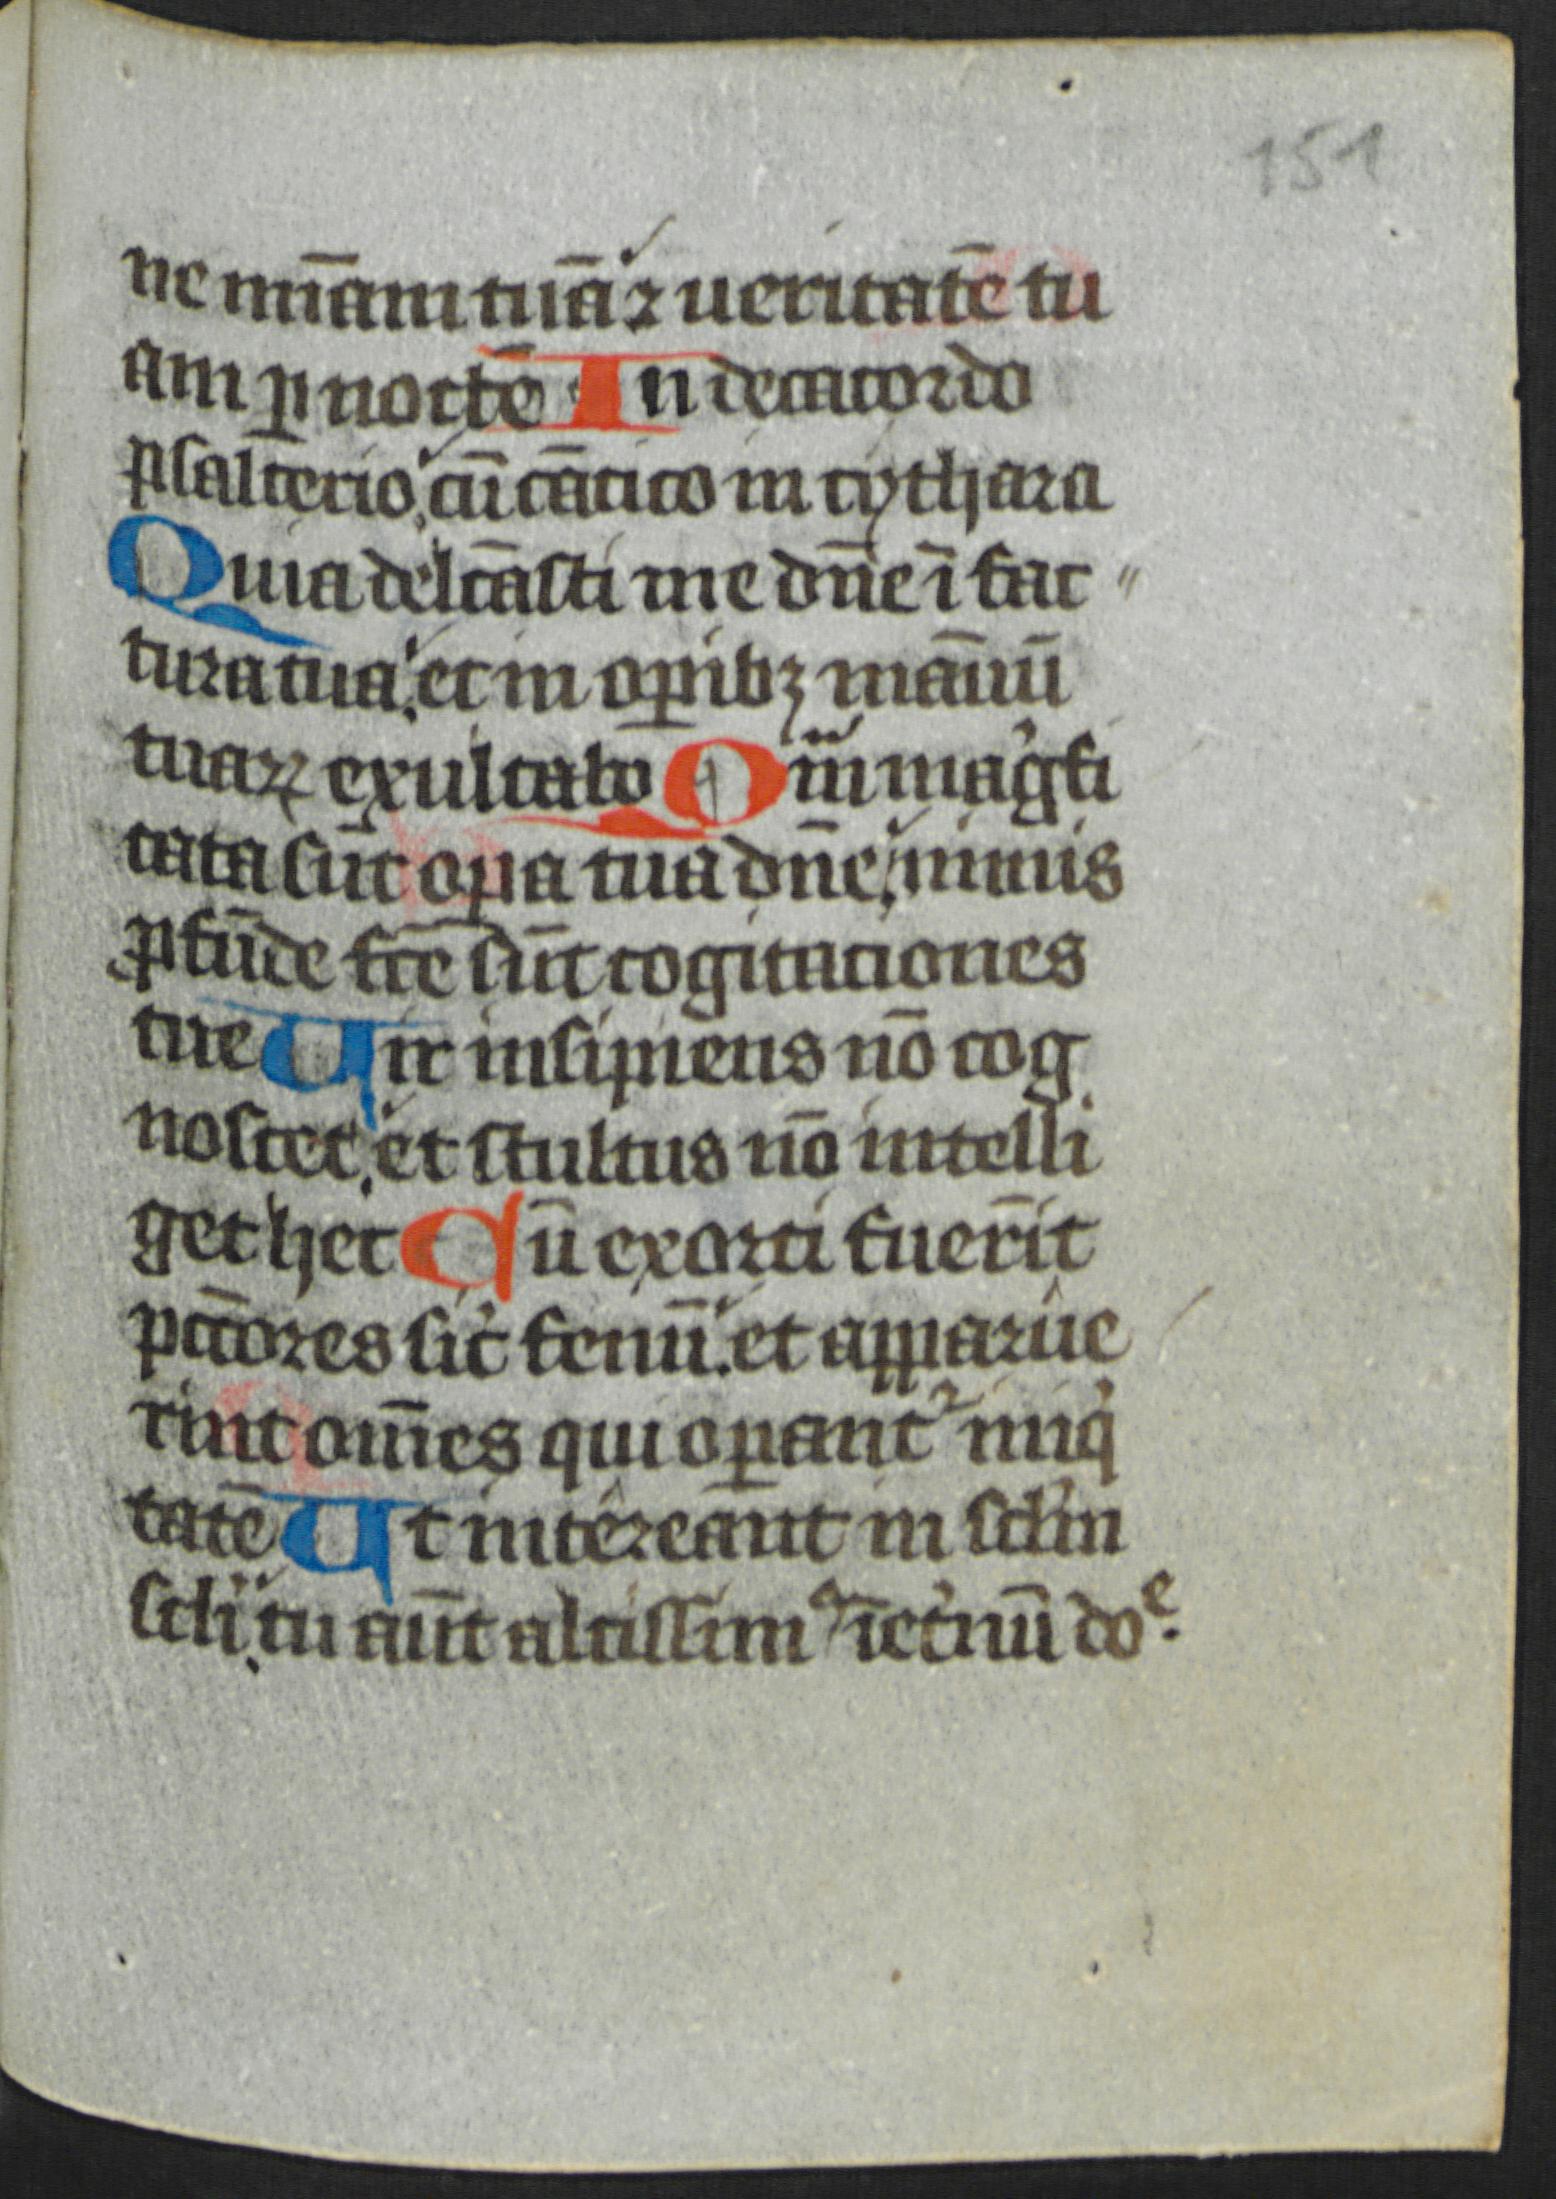 151
ne mīam tuā ⁊ ueritatē tu
am ꝑ noctē In decacordo
psalterio, cū cātico in cythara
Quia delcāsti me dn̄e ī fac〃
tura tua, et in oꝑibꝫ manuū
tuaꝝ exultabo Qm̄ magͥfi
cata sūt oꝑa tua dn̄e, nimis
ꝓfūde fc̄e sūt cogitaciones
tue Uir insipiens nō cog
noscet, et stultus nō intelli
get hec Cū exorti fuerīt
pctōres sic̉ fenū. et apparue
rint om̄es qui oꝑantᷣ iniqͥ
tatē Ut intereant in sclm̄
scli, tu aūt altissimꝰ īet̉nū doᵉ.